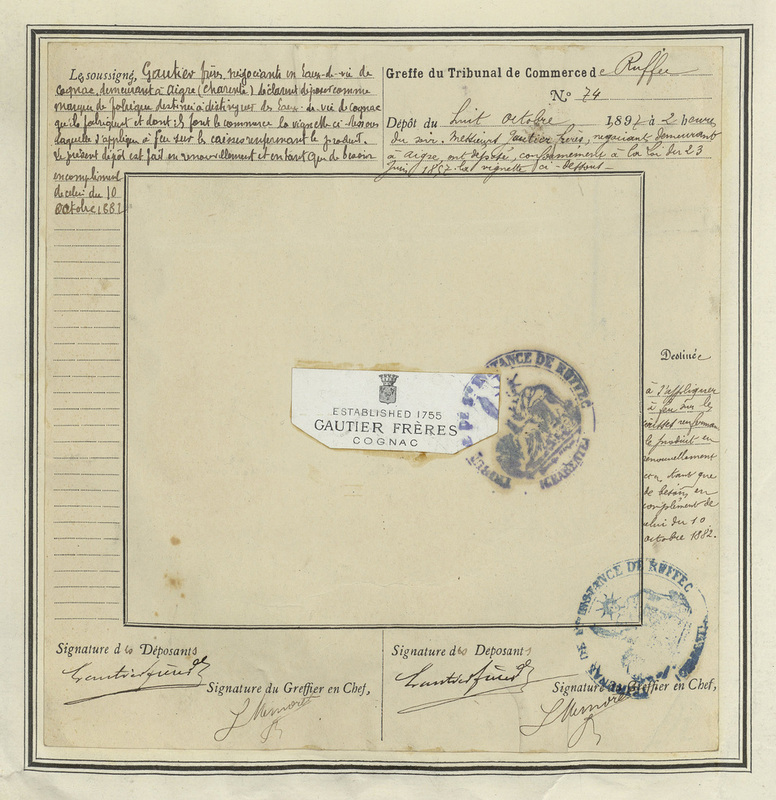 Les soussignés, Gautier frères, négociants en Eaux-de-vie de
Cognac, demeurant à Aigre (Charente) déclarent déposer comme
marque de fabrique destinée à distinguer des Eaux-de-vie de cognac
qu'ils fabriquent et dont ils font le commerce la vignette ci-dessous
laquelle s'applique à feu sur les caisses renfermant le produit.
Le présent dépôt est fait en renouvellement et en tant que de besoin
en complément
de celui du 10
Octobre 1882
Greffe du Tribunal de Commerce de Ruffec
No 74
Dépôt du huit octobre 1897 à 2 heures
du soir. Messieurs Gautier frères, négociants demeurant
à Aigre, ont déposé, conformément à la loi du 23
Juin 1857 la vignette ci-dessous
ESTABLISHED 1755
GAUTIER FRÈRES
COGNAC
INSTANCE DE RUFFEC
(CHARENTE)
Destinée
à s'appliquer
à feu sur les
caisses renfermant
le produit en
renouvellement
et en tant que
de besoin, en
complément de
celui du 10
octobre 1882.
INSTANCE DE RUFFEC
Signature des Déposants
Gautier frères
Signature du Greffier en Chef,
Signature des Déposants
Gautier frères
Signature du Greffier en Chef,